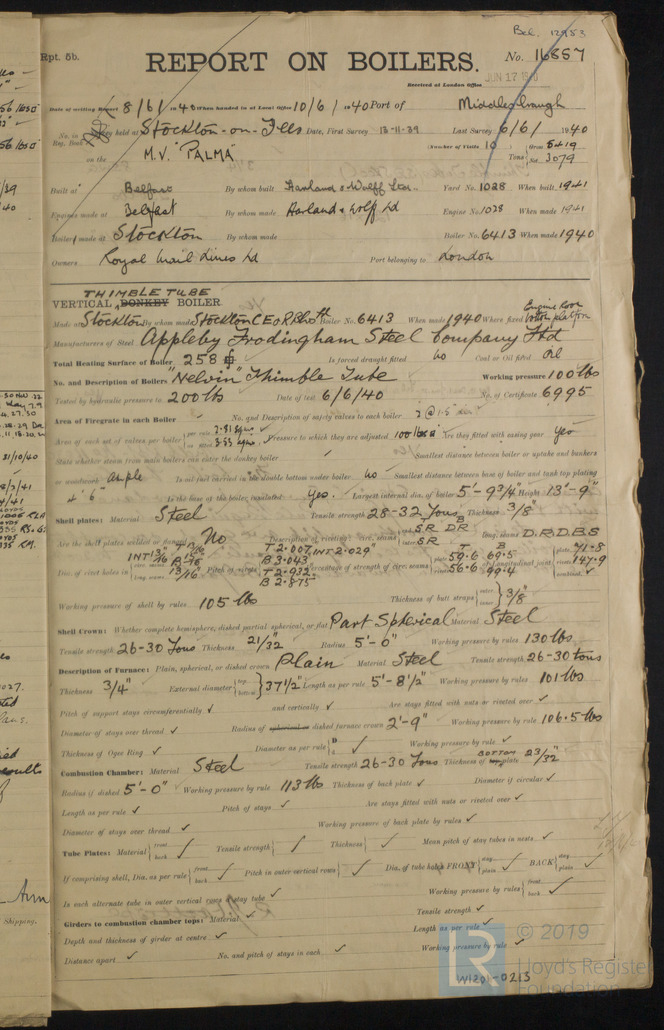 Bel. 12953
Rpt. 5b.
REPORT ON BOILERS.
No. 16857
Received at London Office
JUN 17
Date of writing Report 8/6/1940 When handed in at Local Office 10/6/1940 Port of Middlesbrough
No. in Reg. Book held at Stockton-on-Tees Date, First Survey 13-11-39 Last Survey 6/6/1940
on the M.V. "PALMA" (Number of Visits 10 Tons Gross 5419 Net 3079
Built at Belfast By whom built Harland & Wolff Ltd. Yard No. 1028 When built 1941
Engines made at Belfast By whom made Harland & Wolff Ld Engine No. 1028 When made 1941
Boilers made at Stockton By whom made Boiler No. 6413 When made 1940
Owners Royal Mail Lines Ld Port belonging to London
THIMBLE TUBE
VERTICAL DONKEY BOILER.
Made at Stockton By whom made Stockton C E & R Boiler No. 6413 When made 1940 Where fixed Engine Room bottom platform
Manufacturers of Steel Appleby Frodingham Steel Company Ltd
Total Heating Surface of Boiler 258 Is forced draught fitted no Coal or Oil fired oil
No. and Description of Boilers Thimble Tube Working pressure 100 lbs
Tested by hydraulic pressure to 200 lbs Date of test 6/6/40 No. of Certificate 6995
Area of Firegrate in each Boiler No. and Description of safety valves to each boiler 2 @ 1.5" dia.
Area of each set of valves per boiler per rule as fitted 3.53 Pressure to which they are adjusted 100 lbs Are they fitted with easing gear Yes
State whether steam from main boilers can enter the donkey boiler Smallest distance between boiler or uptake and bunkers
or woodwork ample Is oil fuel carried in the double bottom under boiler no Smallest distance between base of boiler and tank top plating
4'6" Is the base of the boiler insulated Yes. Largest internal dia. of boiler 5'-9 3/4" Height 13'-9"
Shell plates: Material Steel Tensile strength 28-32 Tons Thickness 3/8"
Are the shell plates welded or flanged No Description of riveting: circ. seams SR DR SR long. seams D.R.D.B.S
Dia. of rivet holes in circ. seams long. seams 13/16" Pitch of rivets T 2.007 INT 2.029" B 3.043 T 2.932 B 2.875 Percentage of strength of circ. seams Longitudinal joint
Working pressure of shell by rules 105 lbs Thickness of butt straps outer inner 3/8"
Shell Crown: Whether complete hemisphere, dished partial spherical, or flat Part Spherical Material Steel
Tensile strength 26-30 Tons Thickness 21/32" Radius 5'-0" Working pressure by rules 130 lbs
Description of Furnace: Plain, spherical, or dished crown Plain Material Steel Tensile strength 26-30 tons
Thickness 3/4" External diameter top bottom 37 1/2" Length as per rule 5'-8 1/2" Working pressure by rules 101 lbs
Pitch of support stays circumferentially ✓ and vertically ✓ Are stays fitted with nuts or riveted over ✓
Diameter of stays over thread ✓ Radius of spherical or dished furnace crown 2'-9" Working pressure by rules 106.5 lbs
Thickness of Ogee Ring ✓ Diameter as per rule D ✓ Working pressure by rules ✓
Combustion Chamber: Material Steel Tensile strength 26-30 Tons Thickness of BOTTOM plate 23/32"
Radius if dished 5'-0" Working pressure by rule 113 lbs Thickness of back plate ✓ Diameter if circular ✓
Length as per rule ✓ Pitch of stays ✓ Are stays fitted with nuts or riveted over ✓
Diameter of stays over thread ✓ Working pressure of back plate by rules ✓
Tube Plates: Material front back ✓ Tensile strength ✓ Thickness ✓ Mean pitch of stay tubes in nests ✓
If comprising shell, Dia. as per rule front back ✓ Pitch in outer vertical rows ✓ Dia. of tube holes FRONT stay plain ✓ BACK stay plain ✓
Is each alternate tube in outer vertical rows a stay tube ✓ Working pressure by rules front back ✓
Girders to combustion chamber tops: Material ✓ Tensile strength ✓
Depth and thickness of girder at centre ✓ Length as per rule ✓
Distance apart ✓ No. and pitch of stays in each ✓ Working pressure by rules ✓
Shipping.
© 2019
LR
Lloyd's Register
Foundation
W1201-0215